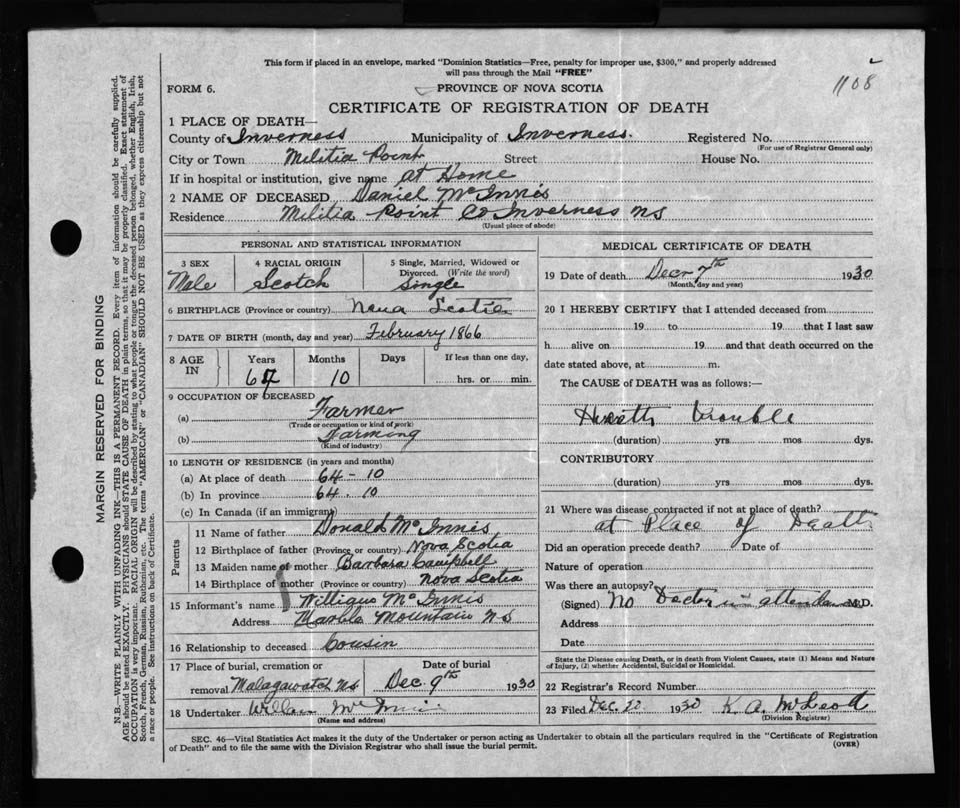 This form if placed in an envelope, marked "Dominion Statistics—Free, penalty for improper use, $300," and properly addressed
will pass through the Mail "FREE"
1108
FORM 6.
PROVINCE OF NOVA SCOTIA
CERTIFICATE OF REGISTRATION OF DEATH
1 PLACE OF DEATH—
County of Inverness Municipality of Inverness. Registered No.
(For use of Registrar General only)
City or Town Militia Point Street House No.
If in hospital or institution, give name at Home
2 NAME OF DECEASED Daniel McInnis
Residence Militia Point Co Inverness NS
(Usual place of abode)
PERSONAL AND STATISTICAL INFORMATION
3 SEX 4 RACIAL ORIGIN 5 Single, Married, Widowed or
Divorced. (Write the word)
Male Scotch Single
6 BIRTHPLACE (Province or country) Nova Scotia
7 DATE OF BIRTH (month, day and year) February 1866
8 AGE IN Years Months Days If less than one day,
64 10 hrs. or min.
9 OCCUPATION OF DECEASED
(a) Farmer
(Trade or occupation or kind of work)
(b) Farming
(Kind of industry)
10 LENGTH OF RESIDENCE (in years and months)
(a) At place of death 64-10
(b) In province 64. 10
(c) In Canada (if an immigrant)
Parents
11 Name of father Donald McInnis
12 Birthplace of father (Province or country) Nova Scotia
13 Maiden name of mother Barbara Campbell
14 Birthplace of mother (Province or country) Nova Scotia
15 Informant's name McInnis
Address Marble Mountain NS
16 Relationship to deceased Cousin
17 Place of burial, cremation or Date of burial
removal Malagawatch NS Dec. 9th 1930
18 Undertaker McInnis
(Name and address)
MEDICAL CERTIFICATE OF DEATH
19 Date of death Decr 7th 1930
(Month, day and year)
20 I HEREBY CERTIFY that I attended deceased from
19 to 19 that I last saw
h alive on 19 and that death occurred on the
date stated above, at m.
The CAUSE of DEATH was as follows:—
Heart trouble
(duration) yrs mos dys.
CONTRIBUTORY
(duration) yrs mos dys.
21 Where was disease contracted if not at place of death?
at Place of Death
Did an operation precede death? Date of
Nature of operation
Was there an autopsy?
(Signed) No Doctor in attendance M.D.
Address
Date
State the Disease causing Death, or in death from Violent Causes, state (1) Means and Nature
of Injury, (2) whether Accidental, Suicidal or Homicidal.
22 Registrar's Record Number
23 Filed Dec. 1930 K. A. McLeod
(Division Registrar)
SEC. 46—Vital Statistics Act makes it the duty of the Undertaker or person acting as Undertaker to obtain all the particulars required in the "Certificate of Registration
of Death" and to file the same with the Division Registrar who shall issue the burial permit.
(OVER)
MARGIN RESERVED FOR BINDING
N.B.—WRITE PLAINLY WITH UNFADING INK—THIS IS A PERMANENT RECORD. Every item of information should be carefully supplied.
AGE should be stated EXACTLY. PHYSICIANS should STATE CAUSE OF DEATH in plain terms, so that it may be properly classified. Exact statement of
OCCUPATION is very important. RACIAL ORIGIN will be described by stating to what people or tongue the deceased person belonged, whether English, Irish,
Scotch, French, German, Russian, Ruthenian, etc. The terms "AMERICAN" or "CANADIAN" SHOULD NOT BE USED as they express citizenship but not
a race or people. See instructions on back of Certificate.